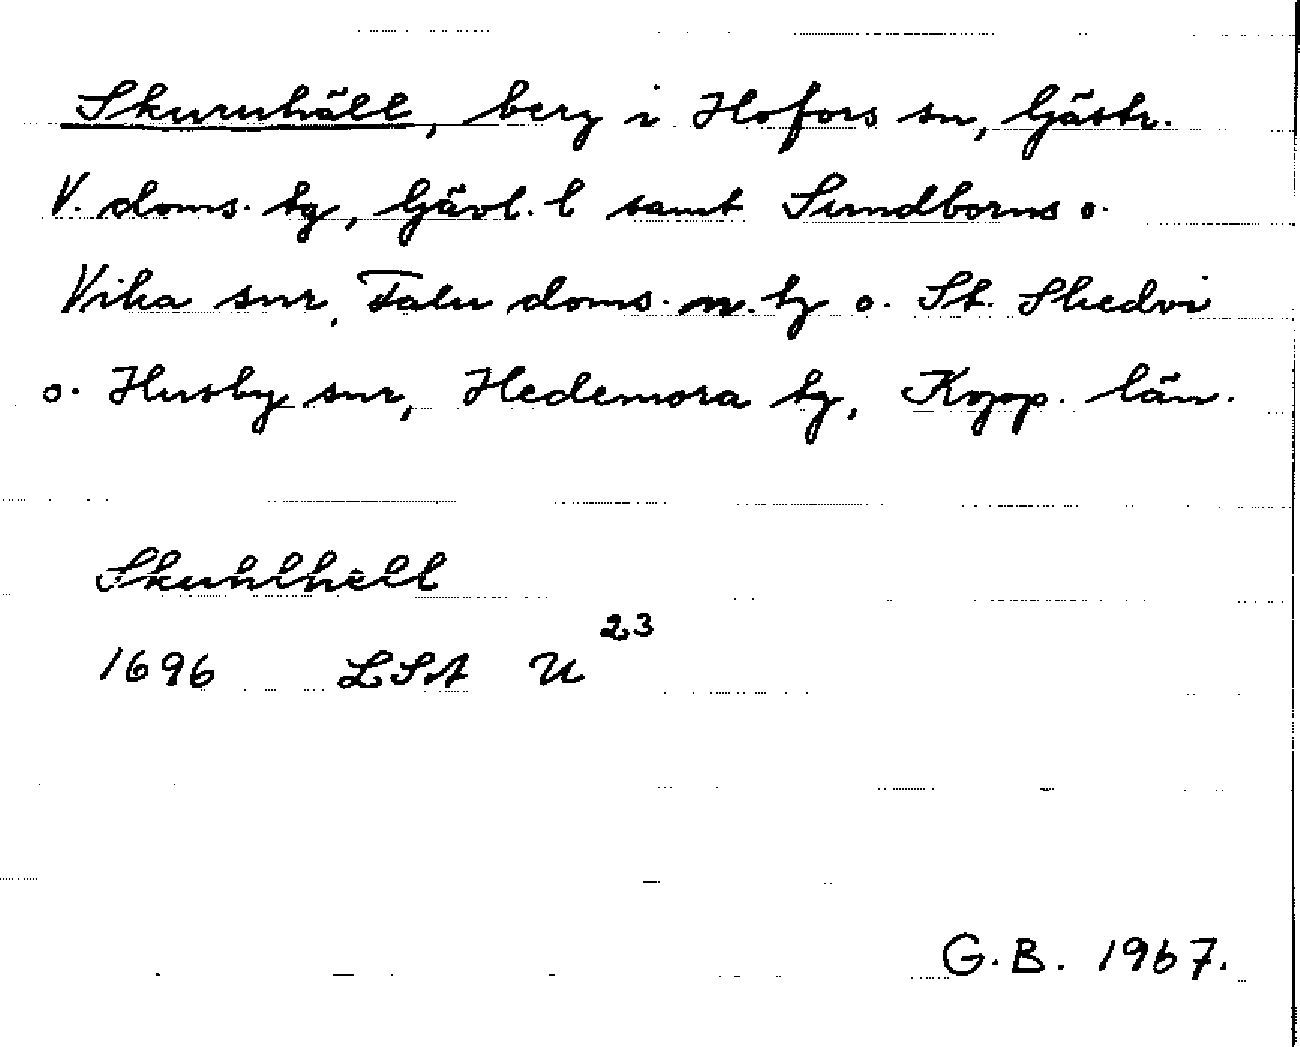 Skuruhäll, berg i Hofors sn, Gästr.
V. doms. tg, Gävl. l samt Sundborns o.
Vika snr, Falu doms. n. tg o. St. Skedvi
o. Husby snr, Hedemora tg, Kopp. län.
Skuhlhell
1696 LSA U 23
G.B. 1967.